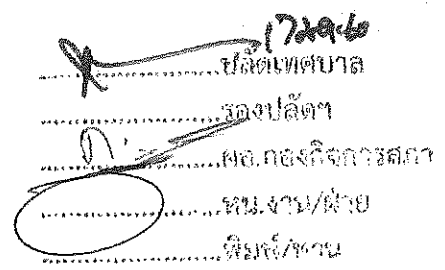 ปลัดเทศบาล
รองปลัดฯ
ผอ.กองกิจการสภา
หน.งาน/ฝ่าย
พิมพ์/ทาน